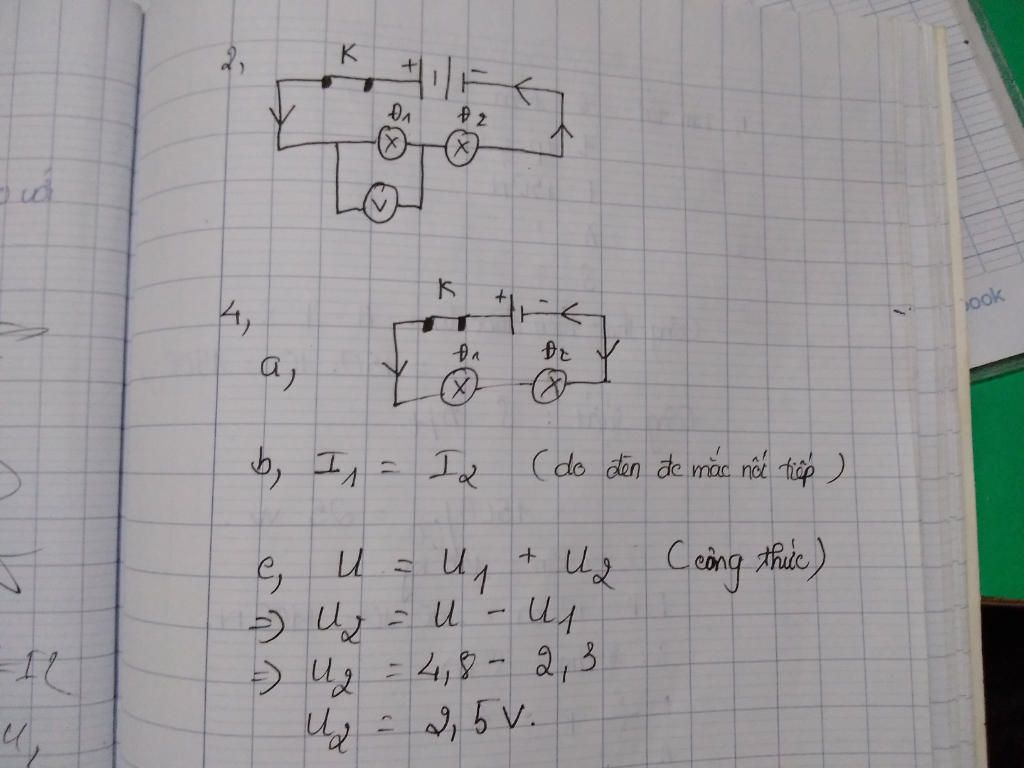 2,
K
+ -
Đ1 Đ2
V
4,
K
+ -
a,
Đ1 Đ2
b, I1 = I2 (do đèn đc mắc nối tiếp)
c, U = U1 + U2 (công thức)
=> U2 = U - U1
=> U2 = 4,8 - 2,3
U2 = 2,5 V.
ook